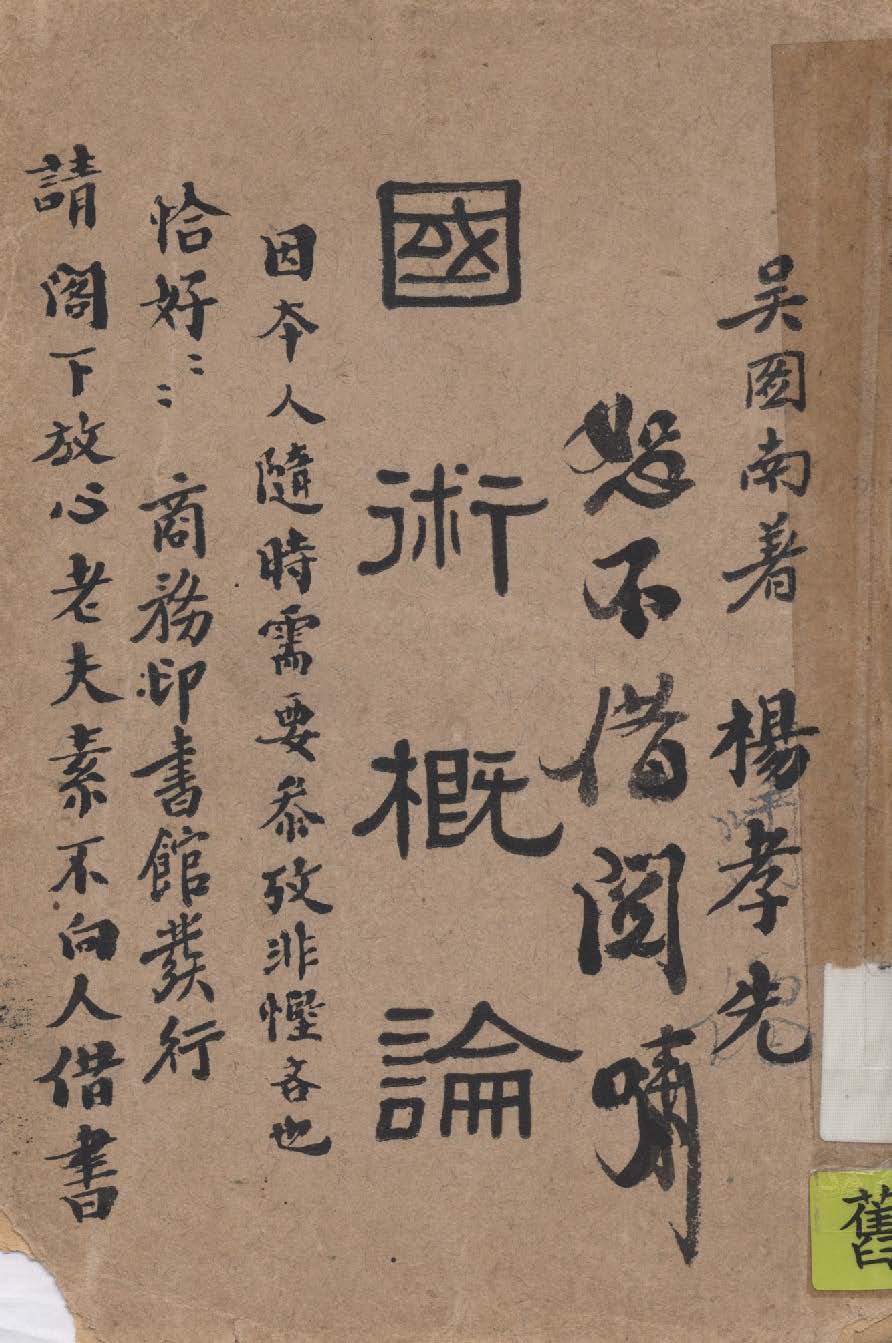 吳圖南著　楊孝先
恕不借閱嘯
國術概論
因本人隨時需要參攷非慳吝也
恰好〻〻　商務印書館發行
請閣下放心老夫素不向人借書
舊